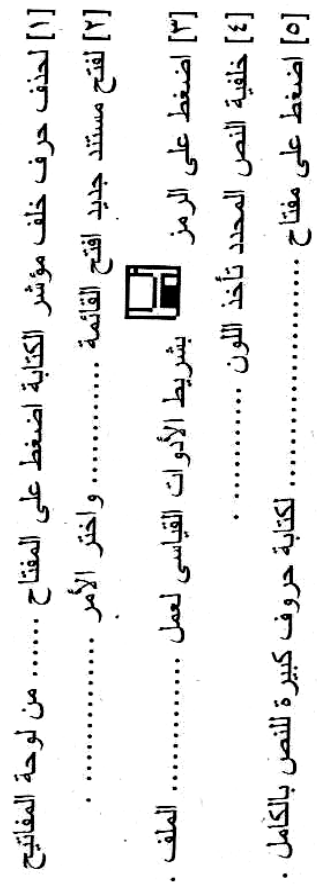 [١] لحذف حرف خلف مؤشر الكتابة اضغط على المفتاح ...... من لوحة المفاتيح
[٢] لفتح مستند جديد افتح القائمة ............ واختر الأمر ............ .
[٣] اضغط على الرمز بشريط الأدوات القياسى لعمل ............ الملف .
[٤] خلفية النص المحدد تأخذ اللون ............ .
[٥] اضغط على مفتاح ........................ لكتابة حروف كبيرة للنص بالكامل .